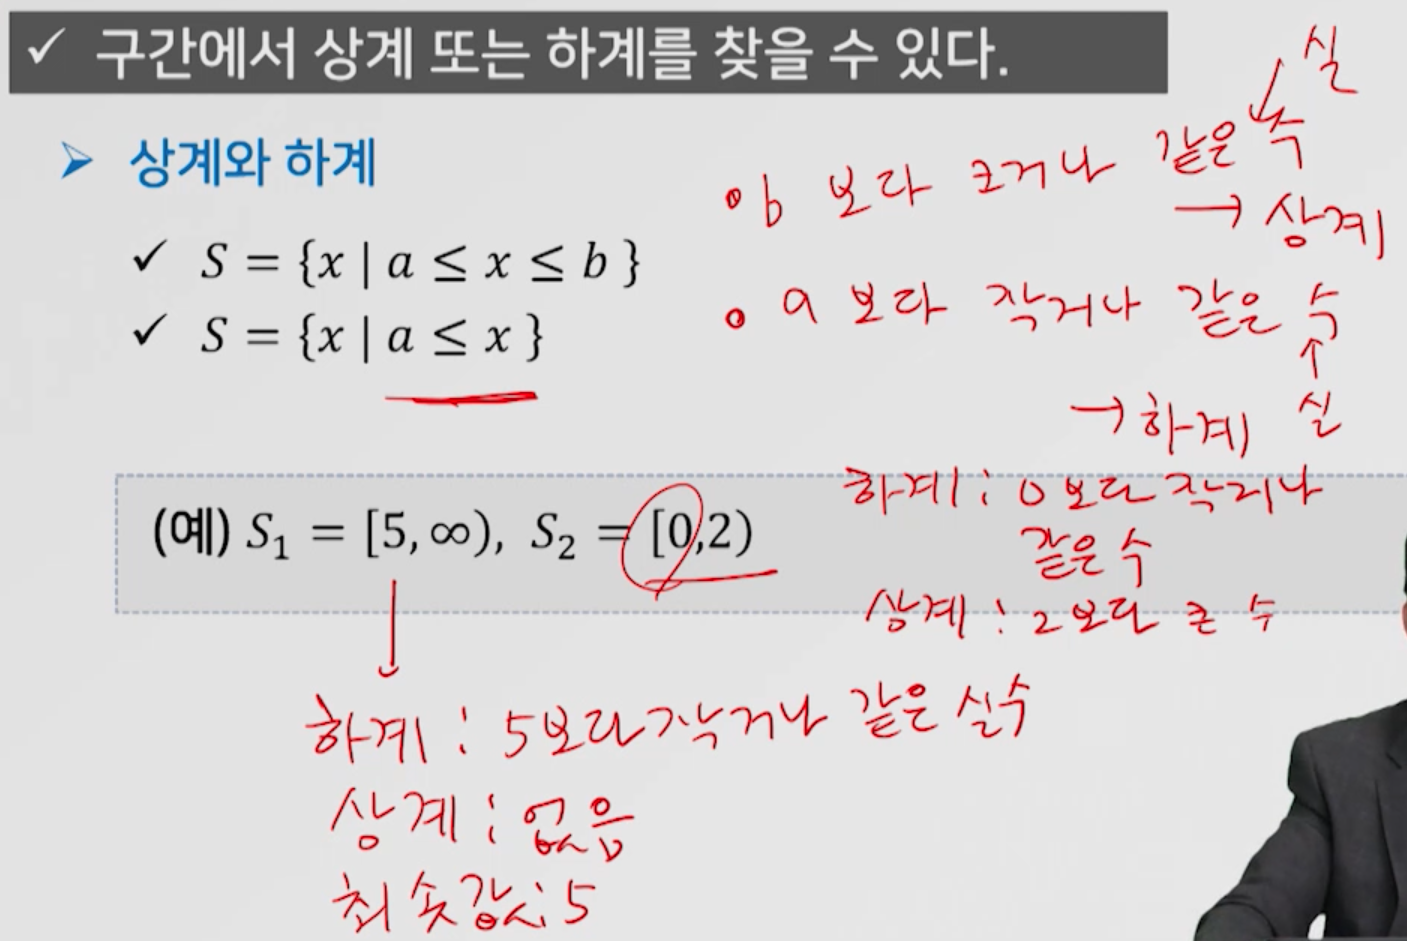 ✓ 구간에서 상계 또는 하계를 찾을 수 있다.
➢ 상계와 하계
✓ S = {x | a ≤ x ≤ b }
✓ S = {x | a ≤ x }
실
• b 보다 크거나 같은 수
→ 상계
• a 보다 작거나 같은 수
실
→ 하계
(예) S₁ = [5, ∞), S₂ = [0,2)
하계 : 0보다 작거나
같은 수
상계 : 2보다 큰 수
하계 : 5보다 작거나 같은 실수
상계 : 없음
최솟값 : 5